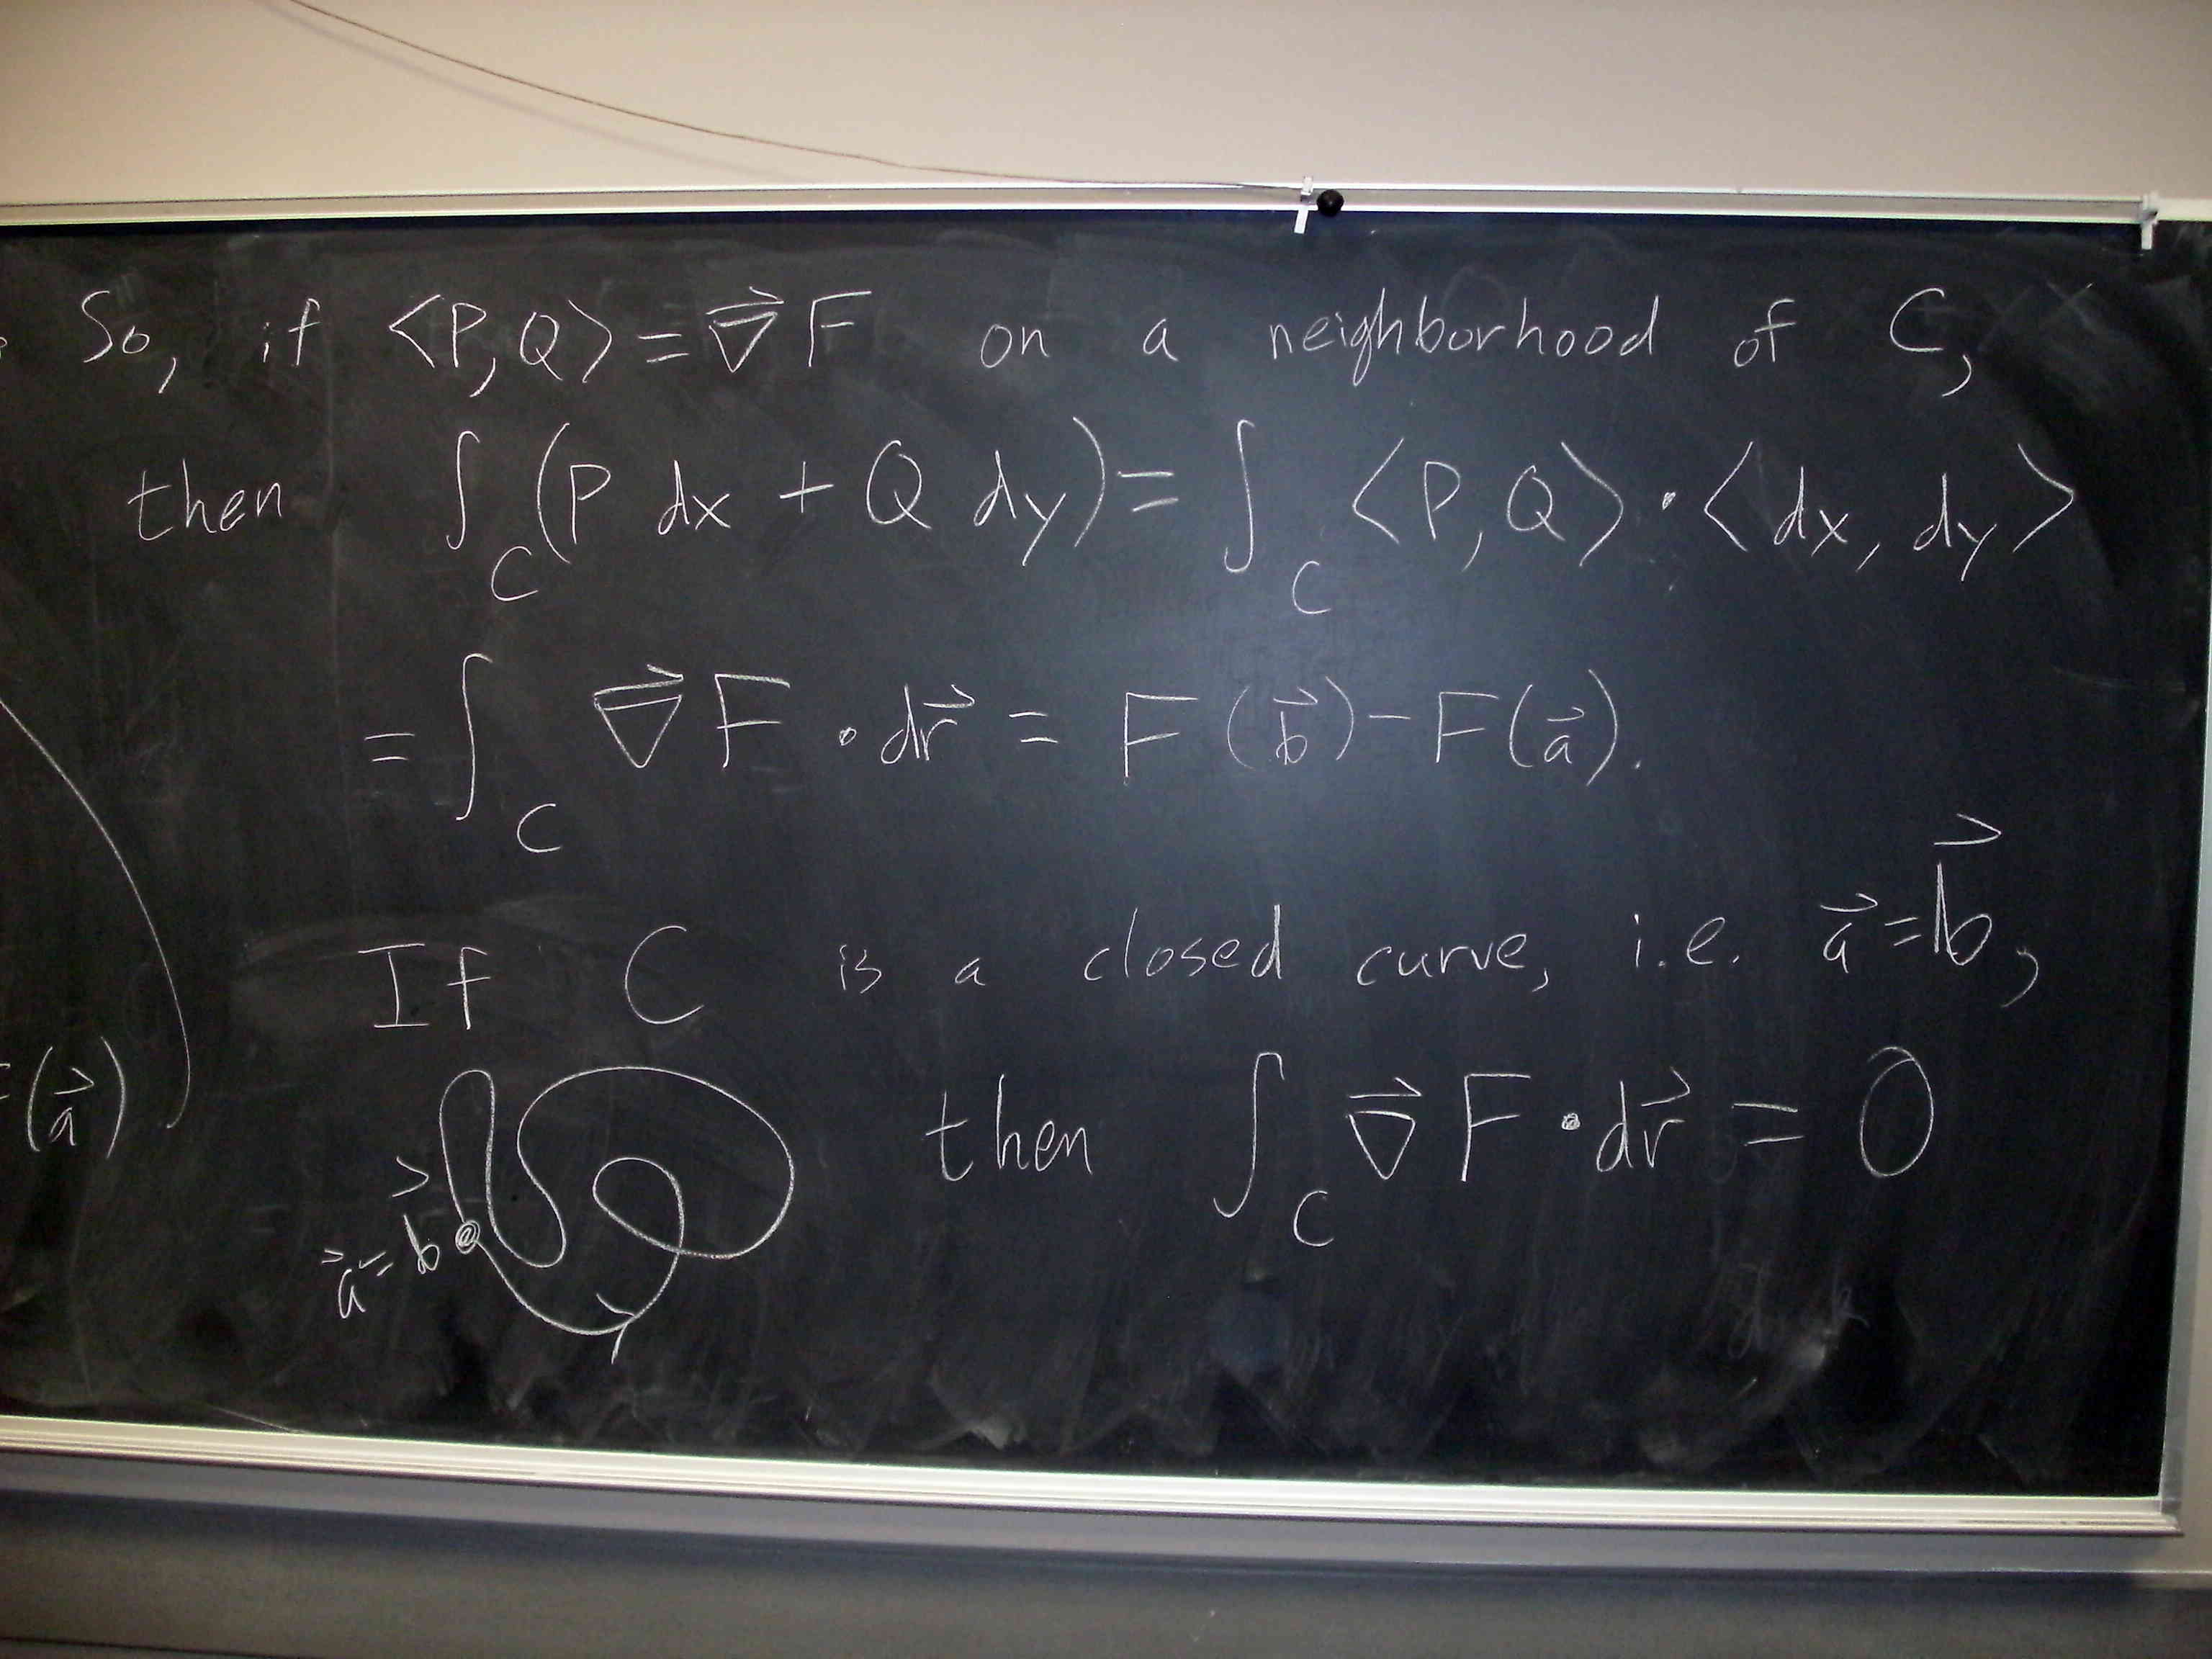 So, if <P,Q> = ∇⃗F on a neighborhood of C,
then ∫_C (P dx + Q dy) = ∫_C <P,Q> · <dx, dy>
= ∫_C ∇⃗F · dr⃗ = F(b⃗) - F(a⃗).
If C is a closed curve, i.e. a⃗ = b⃗,
(a⃗)
then ∫_C ∇⃗F · dr⃗ = 0
a⃗ = b⃗